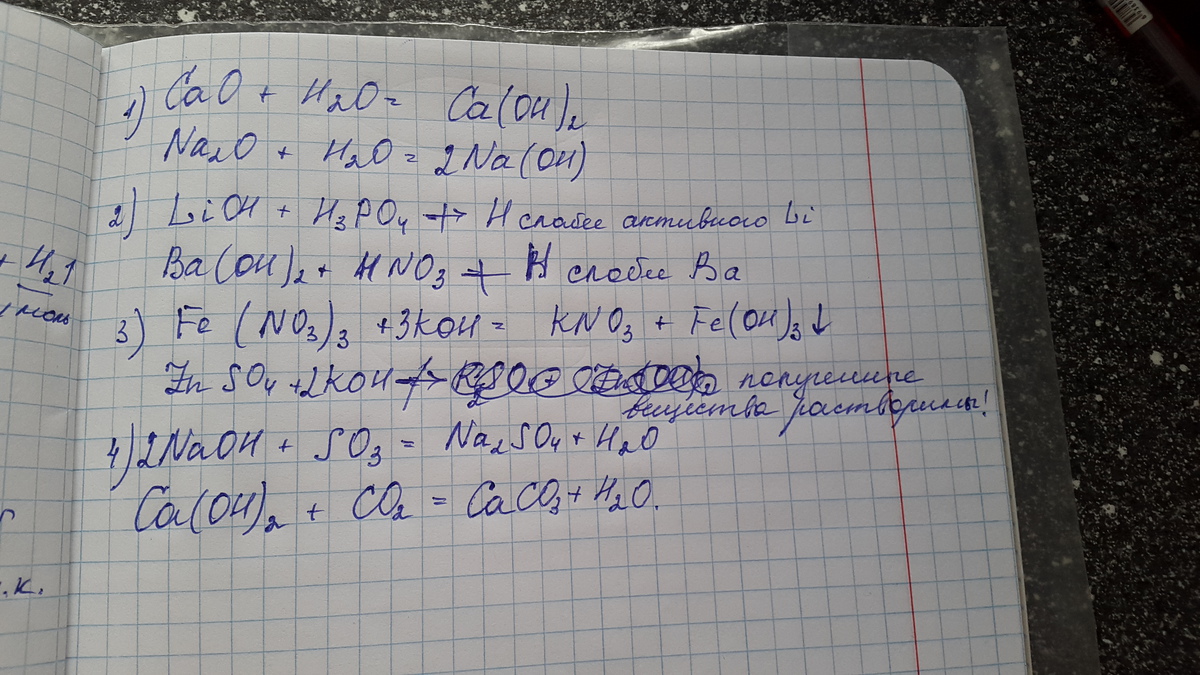 1) CaO + H₂O = Ca(OH)₂
Na₂O + H₂O = 2Na(OH)
2) LiOH + H₃PO₄ ↛ H слабее активного Li
Ba(OH)₂ + HNO₃ ↛ H слабее Ba
3) Fe(NO₃)₃ + 3KOH = KNO₃ + Fe(OH)₃↓
ZnSO₄ + 2KOH ↛ полученные
вещества растворимы!
4) 2NaOH + SO₃ = Na₂SO₄ + H₂O
Ca(OH)₂ + CO₂ = CaCO₃ + H₂O.
+ H₂↑
моль
.к.